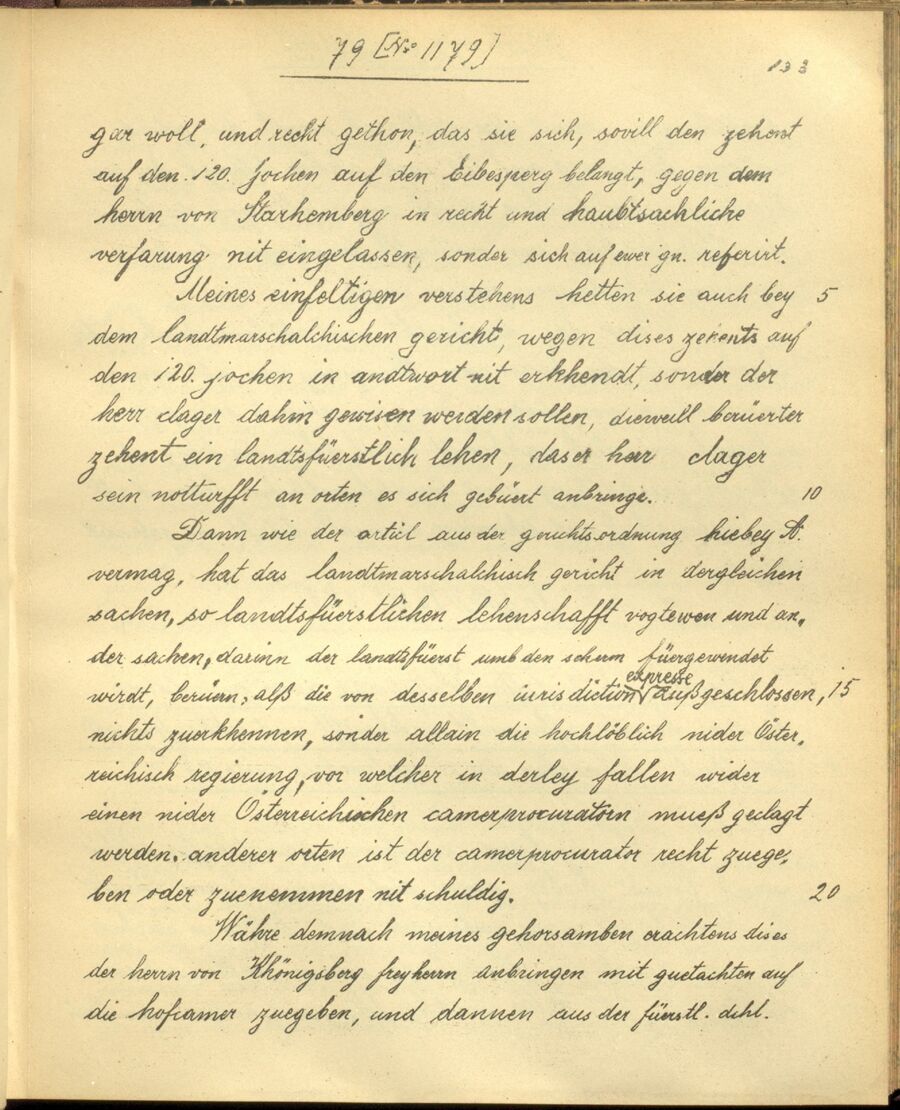 79 [No 1179]
133
gar woll, und recht gethon, das sie sich, sovill den zehent
auf den. 120. jochen auf den Eibesperg belangt, gegen dem
herrn von Starhemberg in recht und haubtsachliche
verfarung nit eingelassen, sonder sich auf ewer gn. referirt.
Meines einfeltigen verstehens hetten sie auch bey 5
dem landtmarschalchischen gericht, wegen dises zehents auf
den 120. jochen in andtwort nit erkhendt, sonder der
herr clager dahin gewisen werden sollen, dieweill berüerter
zehent ein landtsfüerstlich lehen, das er herr clager
sein notturfft an orten es sich gebüert anbringe. 10
Dann wie der articl aus der gerichtsordnung hiebey A.
vermag, hat das landtmarschalchisch gericht in dergleichen
sachen, so landtsfüerstlichen lehenschafft vogteyen und an,
der sachen, darinn der landtsfüerst umb den scherm füergewendet
expresse
wirdt, berüern, alß die von desselben iurisdiction außgeschlossen, 15
nichts zuerkhennen, sonder allain die hochlöblich nider Öster,
reichisch regierung, vor welcher in derley fallen wider
einen nider Österreichischen camerprocuratorn mueß geclagt
werden. anderer orten ist der camerprocurator recht zuege,
ben oder zuenemmen nit schuldig. 20
Währe demnach meines gehorsamben erachtens dises
der herrn von Khönigsberg freyherrn anbringen mit guetachten auf
die hofcamer zuegeben, und dannen aus der füerstl. dchl.